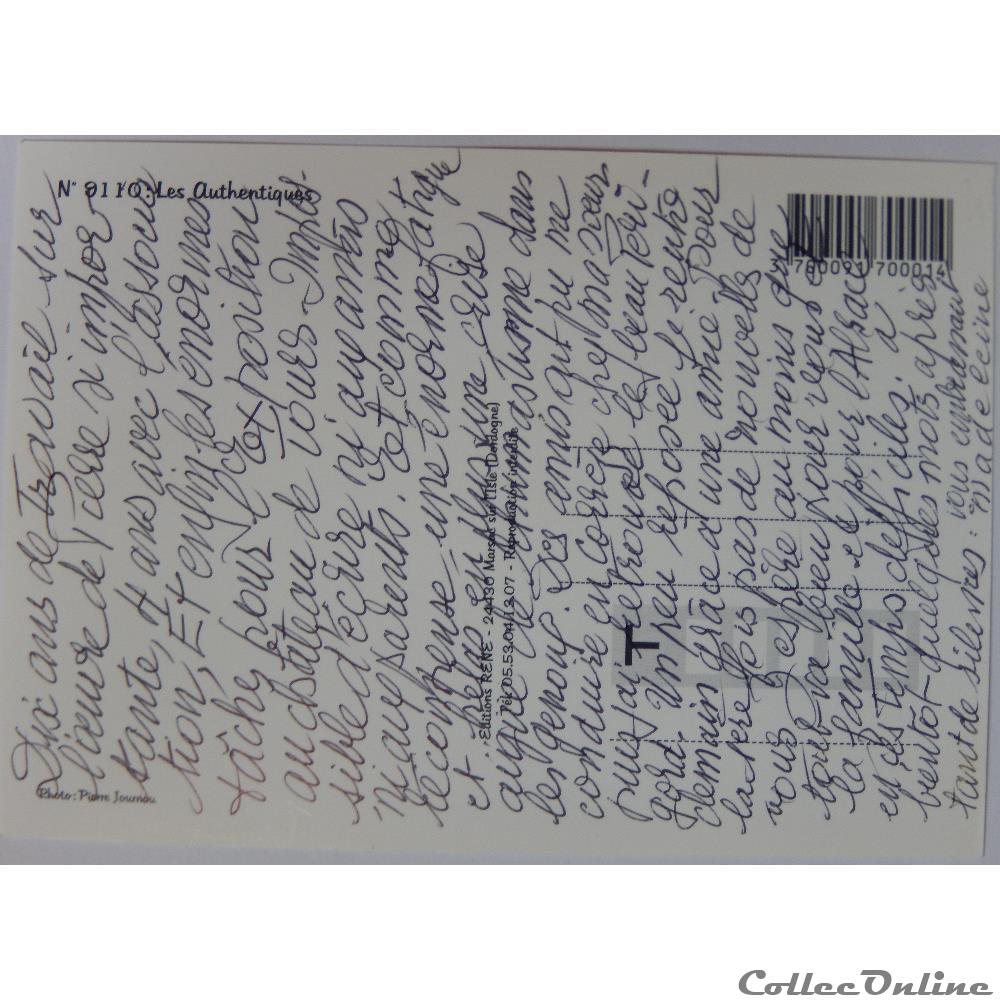 N° 9110: Les Authentiques
Photo: Pierre Journou
Editions RENE - 24430 Marsac sur l'Isle (Dordogne)
Tél. 05.53.04.13.07 - Reproduction interdite
T
700091 700014
Dix ans de Travail sur
l'œuvre de Pierre si impor-
tante, 4 ans avec l'associa
tion, Et enfin les énormes
tâche pour l'exposition
au château de Tours. Impos-
sible d'écrire ni aux amis
ni aux parents. Et comme
récompense une énorme fatigue
et hélas en plus une crise
aigüe de rhumastisme dans
les genoux. Des amis ont pu me
conduire en Corrèze chez ma sœur
puis j'ai retrouvé le beau Péri-
gord. Un peu reposée je rentre
demain grâce à une amie pour
la 1ère fois pas de nouvelles de
vous. J'espère au moins que
tout va bien pour vous et
la famille et pour l'Alsace
en ces temps difficiles. à
bientôt quelques mots après
tant de silence: vous embrassant
Madeleine
CollecOnline